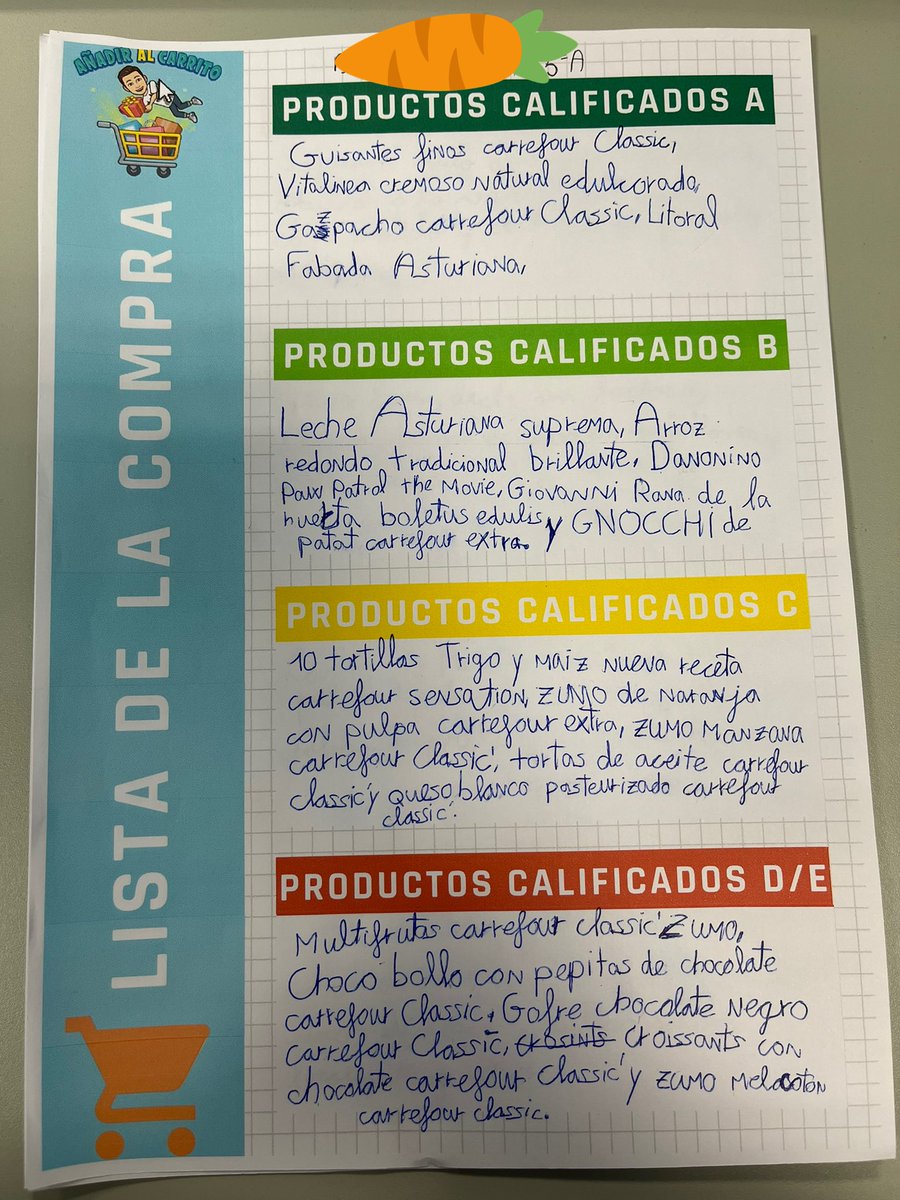 AÑADIR AL CARRITO
LISTA DE LA COMPRA
5-A
PRODUCTOS CALIFICADOS A
Guisantes finos carrefour Classic,
Vitalinea cremoso natural edulcorado,
Gazpacho carrefour Classic, Litoral
Fabada Asturiana,
PRODUCTOS CALIFICADOS B
Leche Asturiana suprema, Arroz
redondo tradicional brillante, Danonino
Paw Patrol the Movie, Giovanni Rana de la
huerta boletus edulis y GNOCCHI de
patat carrefour extra.
PRODUCTOS CALIFICADOS C
10 tortillas Trigo y maiz nueva receta
carrefour sensation, zumo de naranja
con pulpa carrefour extra, zumo Manzana
carrefour Classic', tortas de aceite carrefour
classic' y queso blanco pasteurizado carrefour
classic'.
PRODUCTOS CALIFICADOS D/E
Multifrutas carrefour classic' zumo,
Choco bollo con pepitas de chocolate
carrefour Classic, Gofre chocolate negro
carrefour Classic, crosints croissants con
chocolate carrefour Classic' y zumo melocoton
carrefour classic.